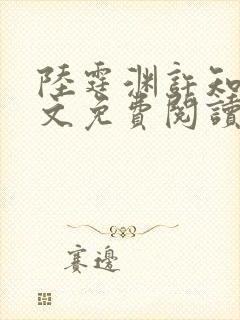 陸霆淵許知
文免費閱讀
賽邊